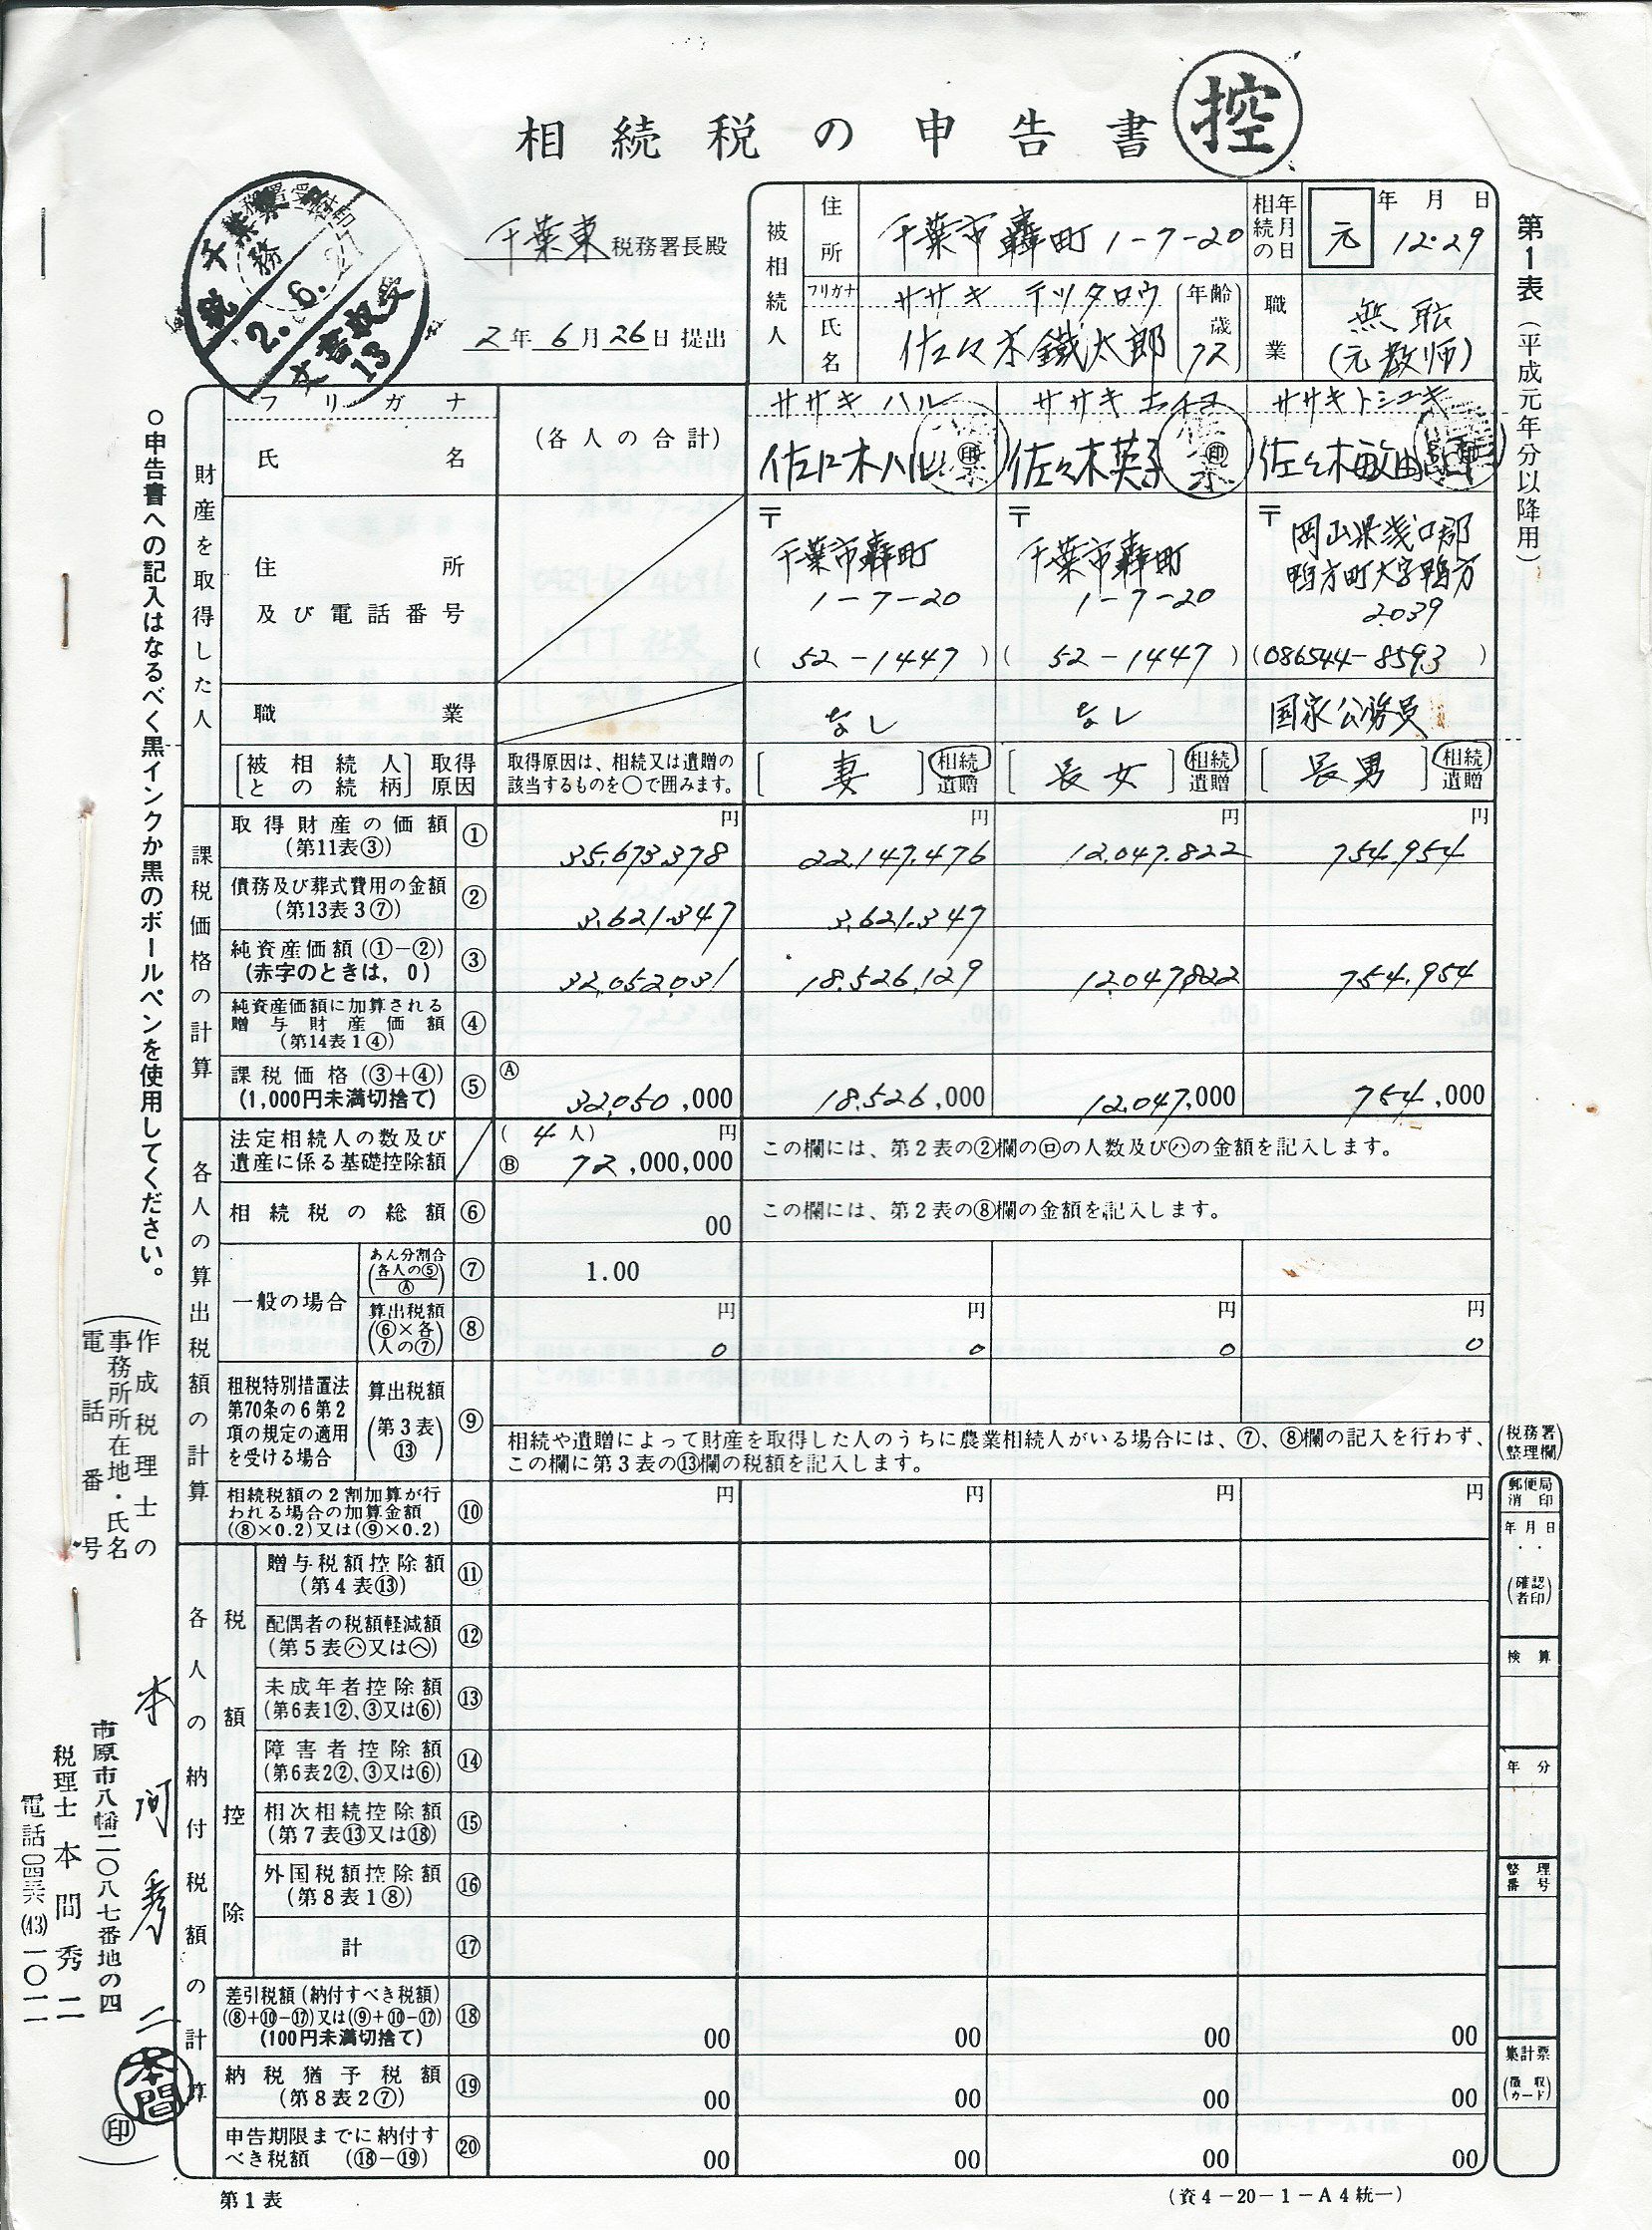 相続税の申告書
控
千葉東税務署長殿
2年6月26日提出
税務署受付印
2.6.27
文書収受
13
被相続人
住所
千葉市轟町1-7-20
フリガナ
ササキ テツタロウ
氏名
佐々木鐵太郎
年齢
歳
72
相続の年月日
年 月 日
元 12.29
職業
無職
(元教師)
第1表(平成元年分以降用)
○申告書への記入はなるべく黒インクか黒のボールペンを使用してください。
財産を取得した人
フリガナ
(各人の合計)
ササキ ハル
ササキ エイコ
ササキトシユキ
氏名
佐々木ハル ㊞
佐々木英子 ㊞
住所及び電話番号
〒
千葉市轟町
1-7-20
(52-1447)
〒
千葉市轟町
1-7-20
(52-1447)
〒
岡山県浅口郡
鴨方町大字鴨方
2039
(086544-8593)
職業
なし
なし
国家公務員
[被相続人との続柄] 取得原因
取得原因は、相続又は遺贈の
該当するものを○で囲みます。
[妻] 相続 遺贈
[長女] 相続 遺贈
[長男] 相続 遺贈
課税価格の計算
取得財産の価額
(第11表③)
①
円 35,673,378
円 22,147,476
円 12,047,822
円 754,954
債務及び葬式費用の金額
(第13表3⑦)
②
3,621,347
3,621,347
純資産価額(①-②)
(赤字のときは,0)
③
32,052,031
18,526,129
12,047,822
754,954
純資産価額に加算される
贈与財産価額
(第14表1④)
④
課税価格(③+④)
(1,000円未満切捨て)
⑤
Ⓐ 32,050,000
18,526,000
12,047,000
754,000
各人の算出税額の計算
法定相続人の数及び
遺産に係る基礎控除額
(4人) 円
Ⓑ 72,000,000
この欄には、第2表の②欄の㋺の人数及び㋩の金額を記入します。
相続税の総額
⑥
00
この欄には、第2表の⑧欄の金額を記入します。
一般の場合
あん分割合
(各人の⑤/Ⓐ)
⑦
1.00
算出税額
(⑥×各人の⑦)
⑧
円 0
円 0
円 0
円 0
租税特別措置法
第70条の6第2
項の規定の適用
を受ける場合
算出税額
(第3表⑬)
⑨
相続や遺贈によって財産を取得した人のうちに農業相続人がいる場合には、⑦、⑧欄の記入を行わず、
この欄に第3表の⑬欄の税額を記入します。
相続税額の2割加算が行
われる場合の加算金額
(⑧×0.2)又は(⑨×0.2)
⑩
円 円 円 円
各人の納付税額の計算
税額控除
贈与税額控除額
(第4表⑬)
⑪
配偶者の税額軽減額
(第5表㋩又は㋬)
⑫
未成年者控除額
(第6表1②、③又は⑥)
⑬
障害者控除額
(第6表2②、③又は⑥)
⑭
相次相続控除額
(第7表⑬又は⑱)
⑮
外国税額控除額
(第8表1⑧)
⑯
計
⑰
差引税額(納付すべき税額)
(⑧+⑩-⑰)又は(⑨+⑩-⑰)
(100円未満切捨て)
⑱
00 00 00 00
納税猶予税額
(第8表2⑦)
⑲
00 00 00 00
申告期限までに納付す
べき税額 (⑱-⑲)
⑳
00 00 00 00
(税務署整理欄)
郵便局消印
年月日
・・
(確認者印)
検算
年分
整理番号
集計票
(徴収カード)
(作成税理士の事務所所在地・氏名
電話番号
市原市八幡二〇八七番地の四
税理士 本間秀二
本間
㊞)
第1表
(資4-20-1-A4統一)